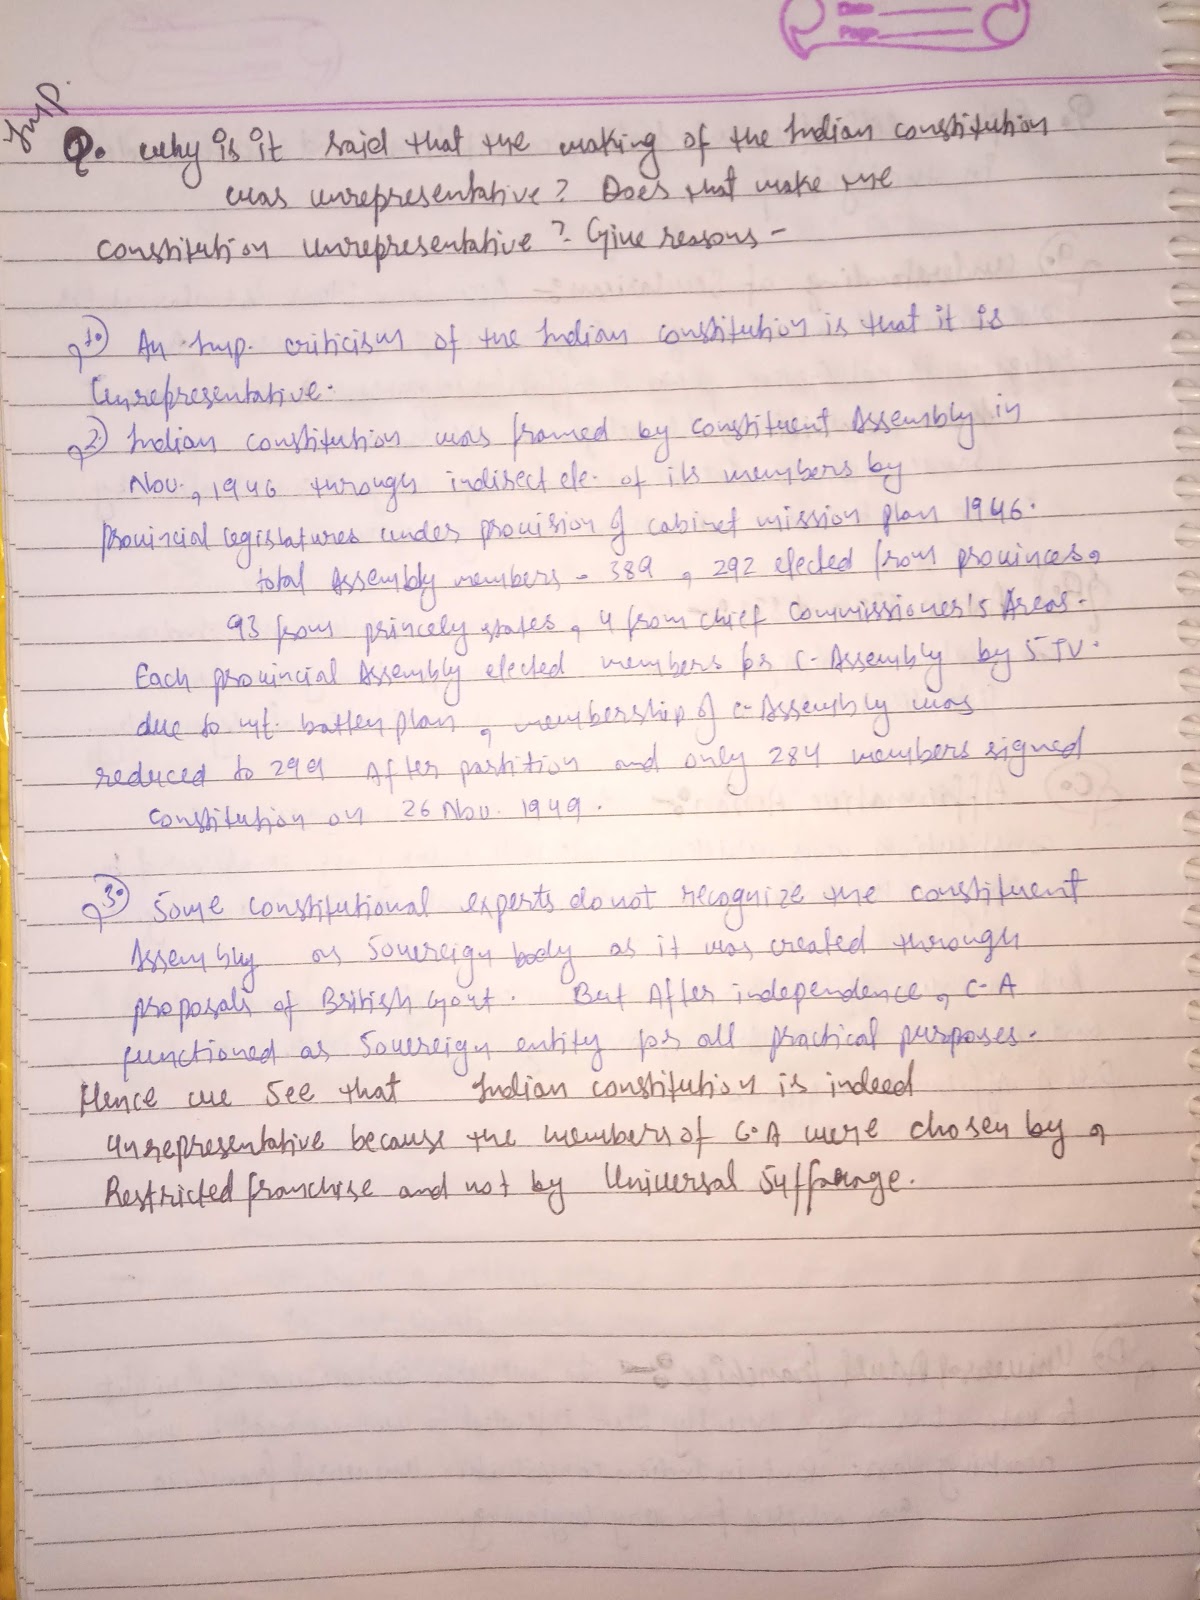 Date
Page
Imp.
Q. Why is it said that the making of the Indian constitution
was unrepresentative? Does that make the
constitution unrepresentative? Give reasons -
1. An Imp. criticism of the Indian constitution is that it is
Unrepresentative.
2. Indian constitution was framed by constituent Assembly in
Nov., 1946 through indirect ele. of its members by
provincial legislatures under provision of cabinet mission plan 1946.
total Assembly members - 389, 292 elected from provinces,
93 from princely states, 4 from chief Commissioner's Areas.
Each provincial Assembly elected members for C-Assembly by STV.
due to mt. batten plan, membership of C-Assembly was
reduced to 299 After partition and only 284 members signed
constitution on 26 Nov. 1949.
3. Some constitutional experts do not recognize the constituent
Assembly as Sovereign body as it was created through
proposals of British Govt. But After independence, C-A
functioned as Sovereign entity for all practical purposes.
Hence we See that Indian constitution is indeed
unrepresentative because the members of C.A were chosen by,
Restricted franchise and not by Universal Suffarage.